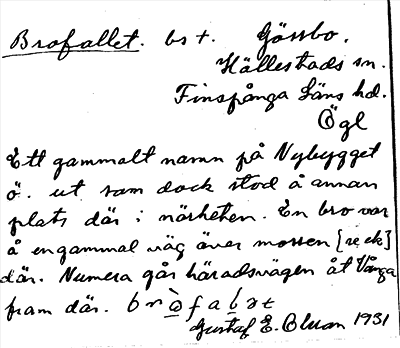 Brofallet. bst. Gässbo.
Hällestads sn.
Finspånga Läns hd.
Ögl
Ett gammalt namn på Nybygget
ö. ut som dock stod å annan
plats där i närheten. En bro var
å en gammal väg över mossen [se ek]
där. Numera går häradsvägen åt Vånga
fram där.
Gustaf E. Olsson 1931